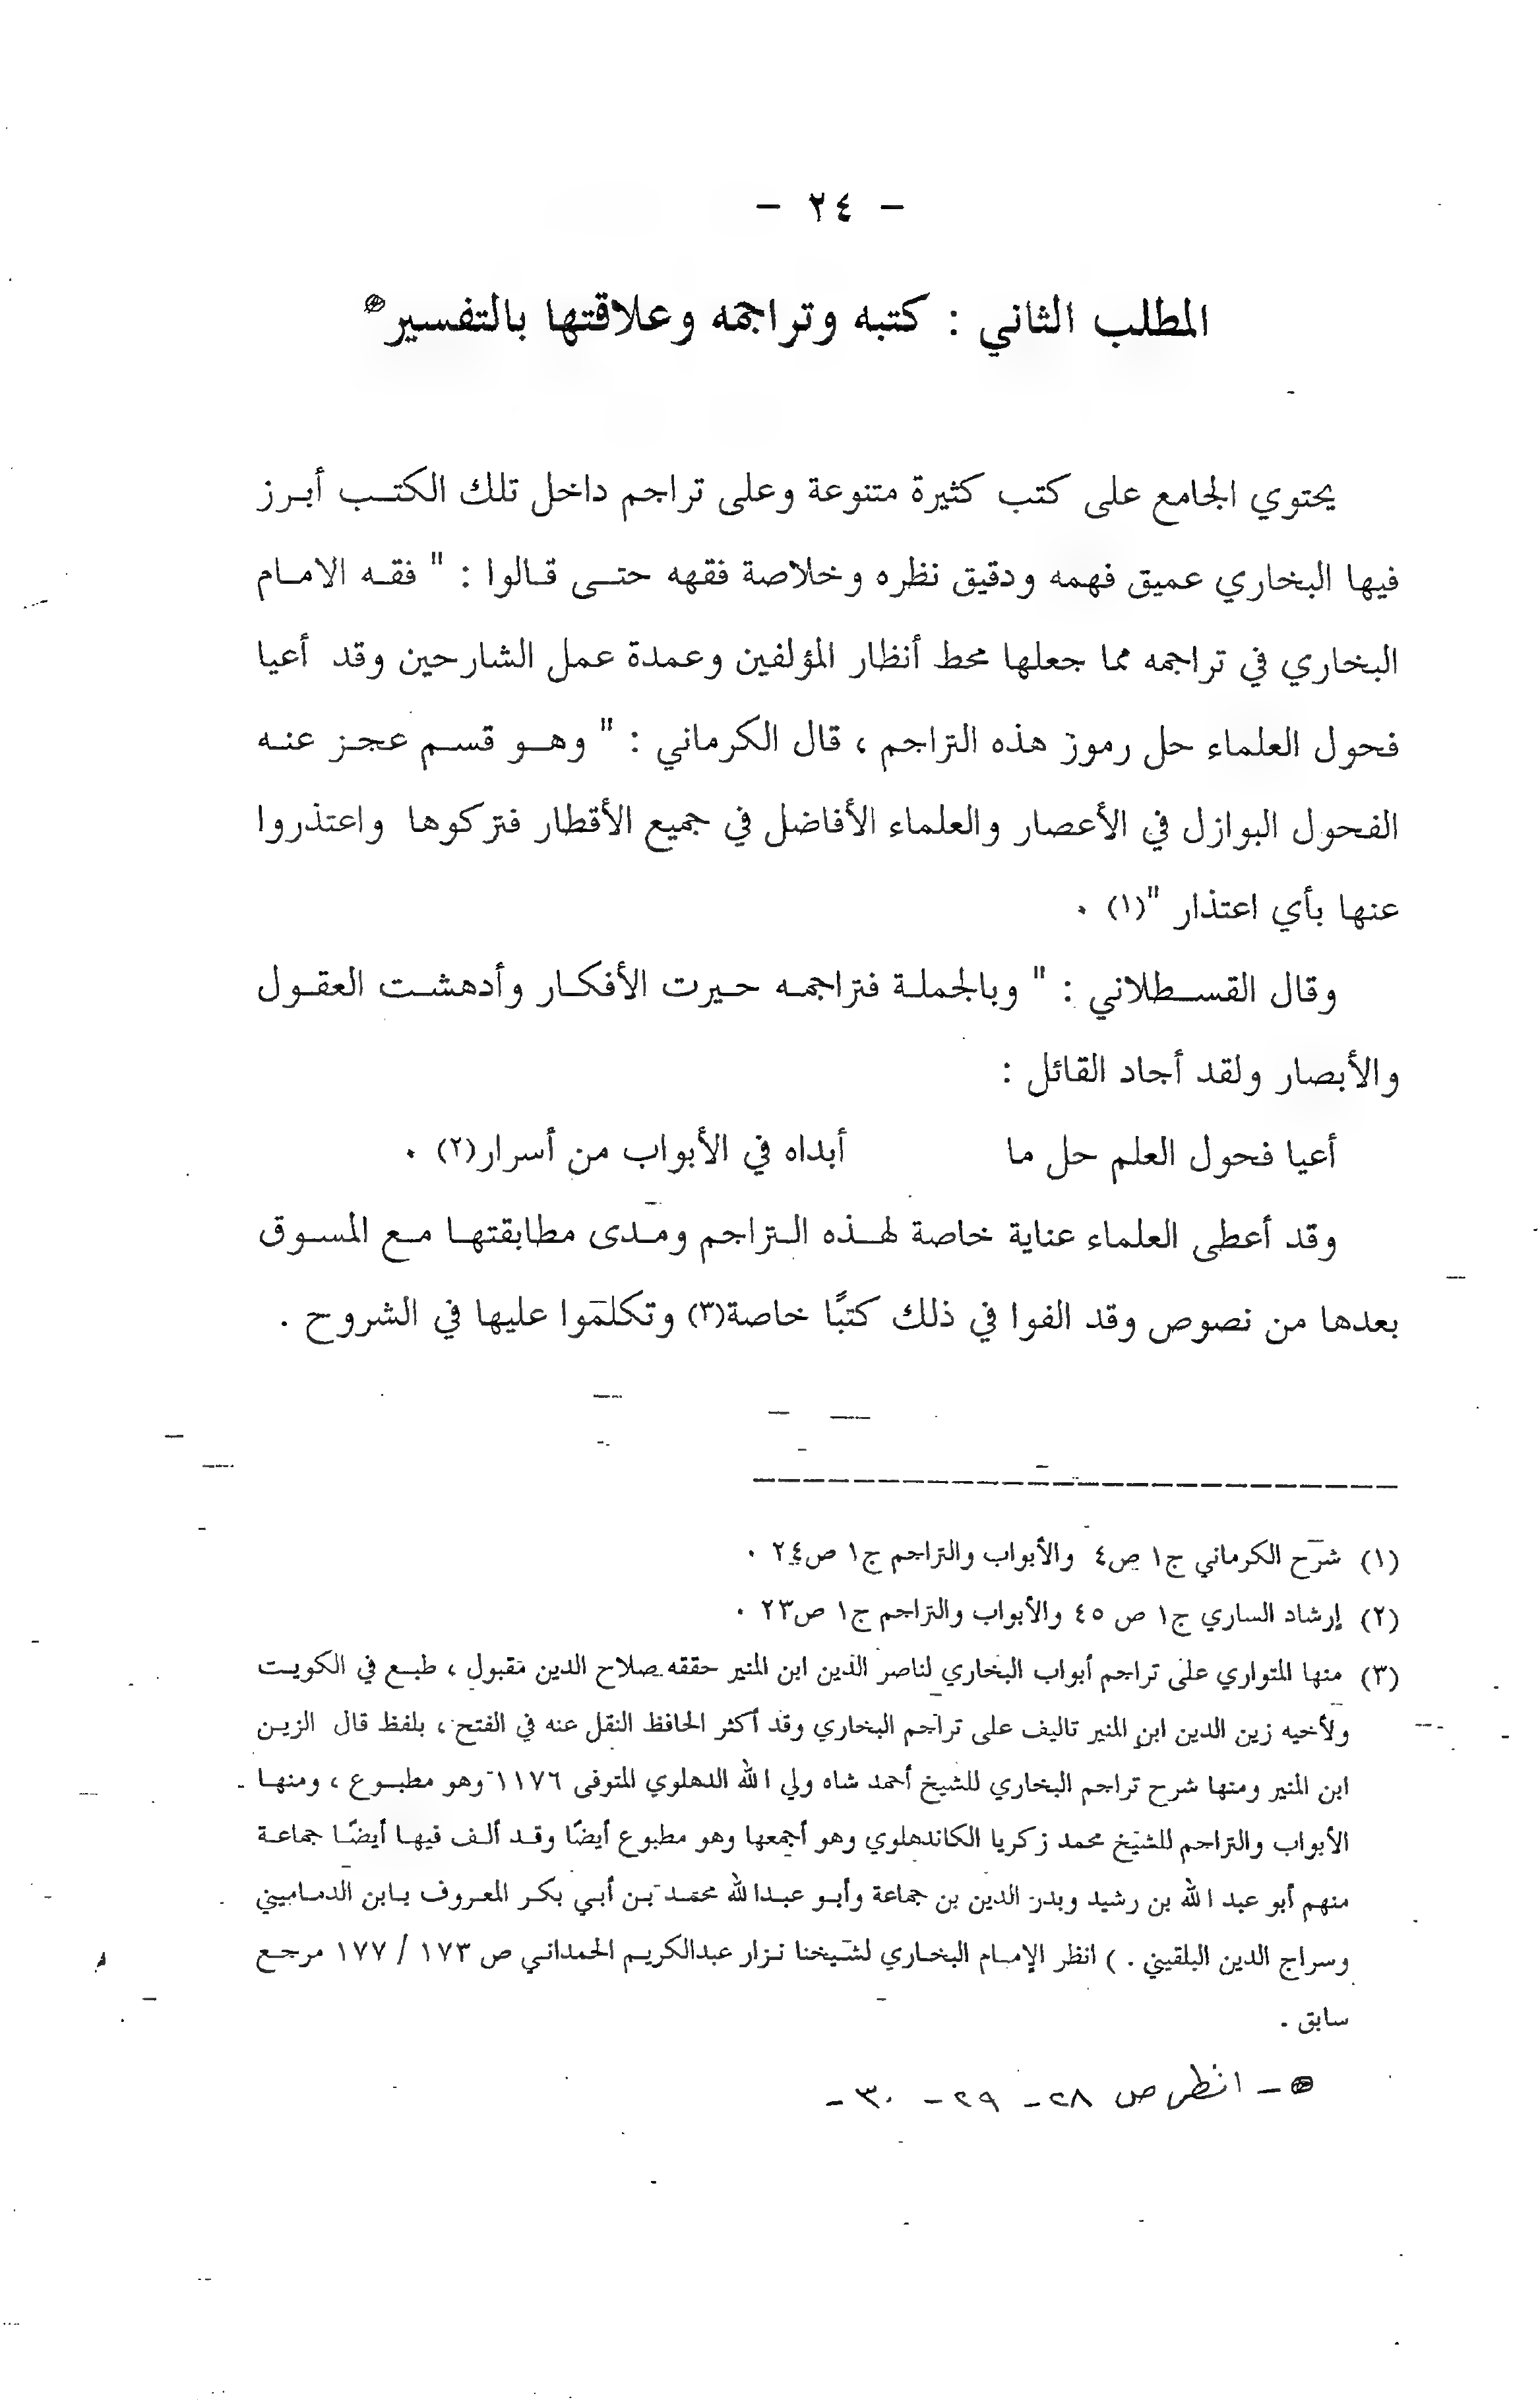 - ٢٤ -
المطلب الثاني : كتبه وتراجمه وعلاقتها بالتفسير
يحتوي الجامع على كتب كثيرة متنوعة وعلى تراجم داخل تلك الكتب أبرز
فيها البخاري عميق فهمه ودقيق نظره وخلاصة فقهه حتى قالوا : " فقه الامام
البخاري في تراجمه مما جعلها محط أنظار المؤلفين وعمدة عمل الشارحين وقد أعيا
فحول العلماء حل رموز هذه التراجم ، قال الكرماني : " وهو قسم عجز عنه
الفحول البوازل في الأعصار والعلماء الأفاضل في جميع الأقطار فتركوها واعتذروا
عنها بأي اعتذار "(١) .
وقال القسطلاني : " وبالجملة فتراجمه حيرت الأفكار وأدهشت العقول
والأبصار ولقد أجاد القائل :
أعيا فحول العلم حل ما أبداه في الأبواب من أسرار(٢) .
وقد أعطى العلماء عناية خاصة لهذه التراجم ومدى مطابقتها مع المسوق
بعدها من نصوص وقد الفوا في ذلك كتبًا خاصة(٣) وتكلموا عليها في الشروح .
(١) شرح الكرماني ج١ ص٤ والأبواب والتراجم ج١ ص٢٤ .
(٢) إرشاد الساري ج١ ص ٤٥ والأبواب والتراجم ج١ ص٢٣ .
(٣) منها المتواري على تراجم أبواب البخاري لناصر الدين ابن المنير حققه صلاح الدين مقبول ، طبع في الكويت
ولأخيه زين الدين ابن المنير تاليف على تراجم البخاري وقد أكثر الحافظ النقل عنه في الفتح ، بلفظ قال الزين
ابن المنير ومنها شرح تراجم البخاري للشيخ أحمد شاه ولي الله الدهلوي المتوفى ١١٧٦ وهو مطبوع ، ومنها
الأبواب والتراجم للشيخ محمد زكريا الكاندهلوي وهو أجمعها وهو مطبوع أيضًا وقد ألف فيها أيضًا جماعة
منهم أبو عبد الله بن رشيد وبدر الدين بن جماعة وأبو عبدالله محمد بن أبي بكر المعروف بابن الدماميني
وسراج الدين البلقيني . ) انظر الإمام البخاري لشيخنا نزار عبدالكريم الحمداني ص ١٧٣ / ١٧٧ مرجع
سابق .
- انظر ص ٢٨ - ٢٩ - ٣٠ -